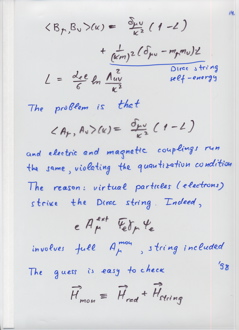 ⟨B_μ, B_ν⟩(k) = δ_μν/k² (1 - L)
+ 1/(k·m)² (δ_μν - m_μ m_ν) L
Dirac string
L = α_e/6 ln Λ_UV²/k² self-energy
The problem is that
⟨A_μ, A_ν⟩(k) = δ_μν/k² (1 - L)
and electric and magnetic couplings run
the same, violating the quantization condition
The reason: virtual particles (electrons)
strike the Dirac string. Indeed,
e A_μ^ext Ψ̄_e γ_μ Ψ_e
involves full A_μ^mon, string included
The guess is easy to check '98
H⃗_mon = H⃗_rad + H⃗_string